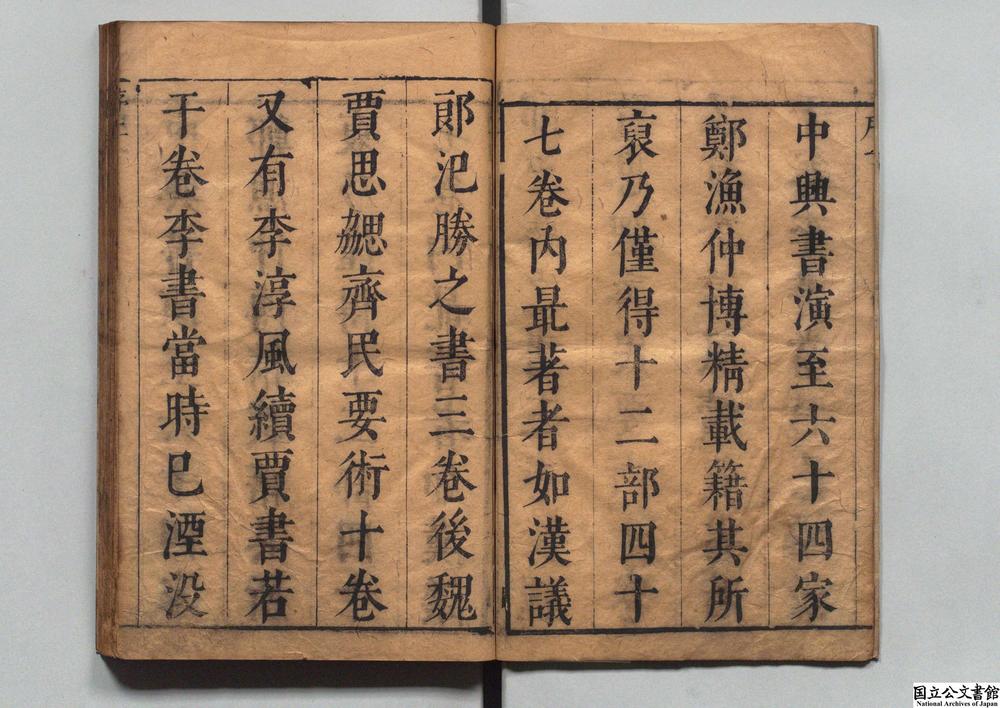 中興書演至六十四家
鄭漁仲博精載籍其所
裒乃僅得十二部四十
七卷内最著者如漢議
郎氾勝之書三卷後魏
賈思勰齊民要術十卷
又有李淳風續賈書若
干卷李書當時已湮没
国立公文書館
National Archives of Japan